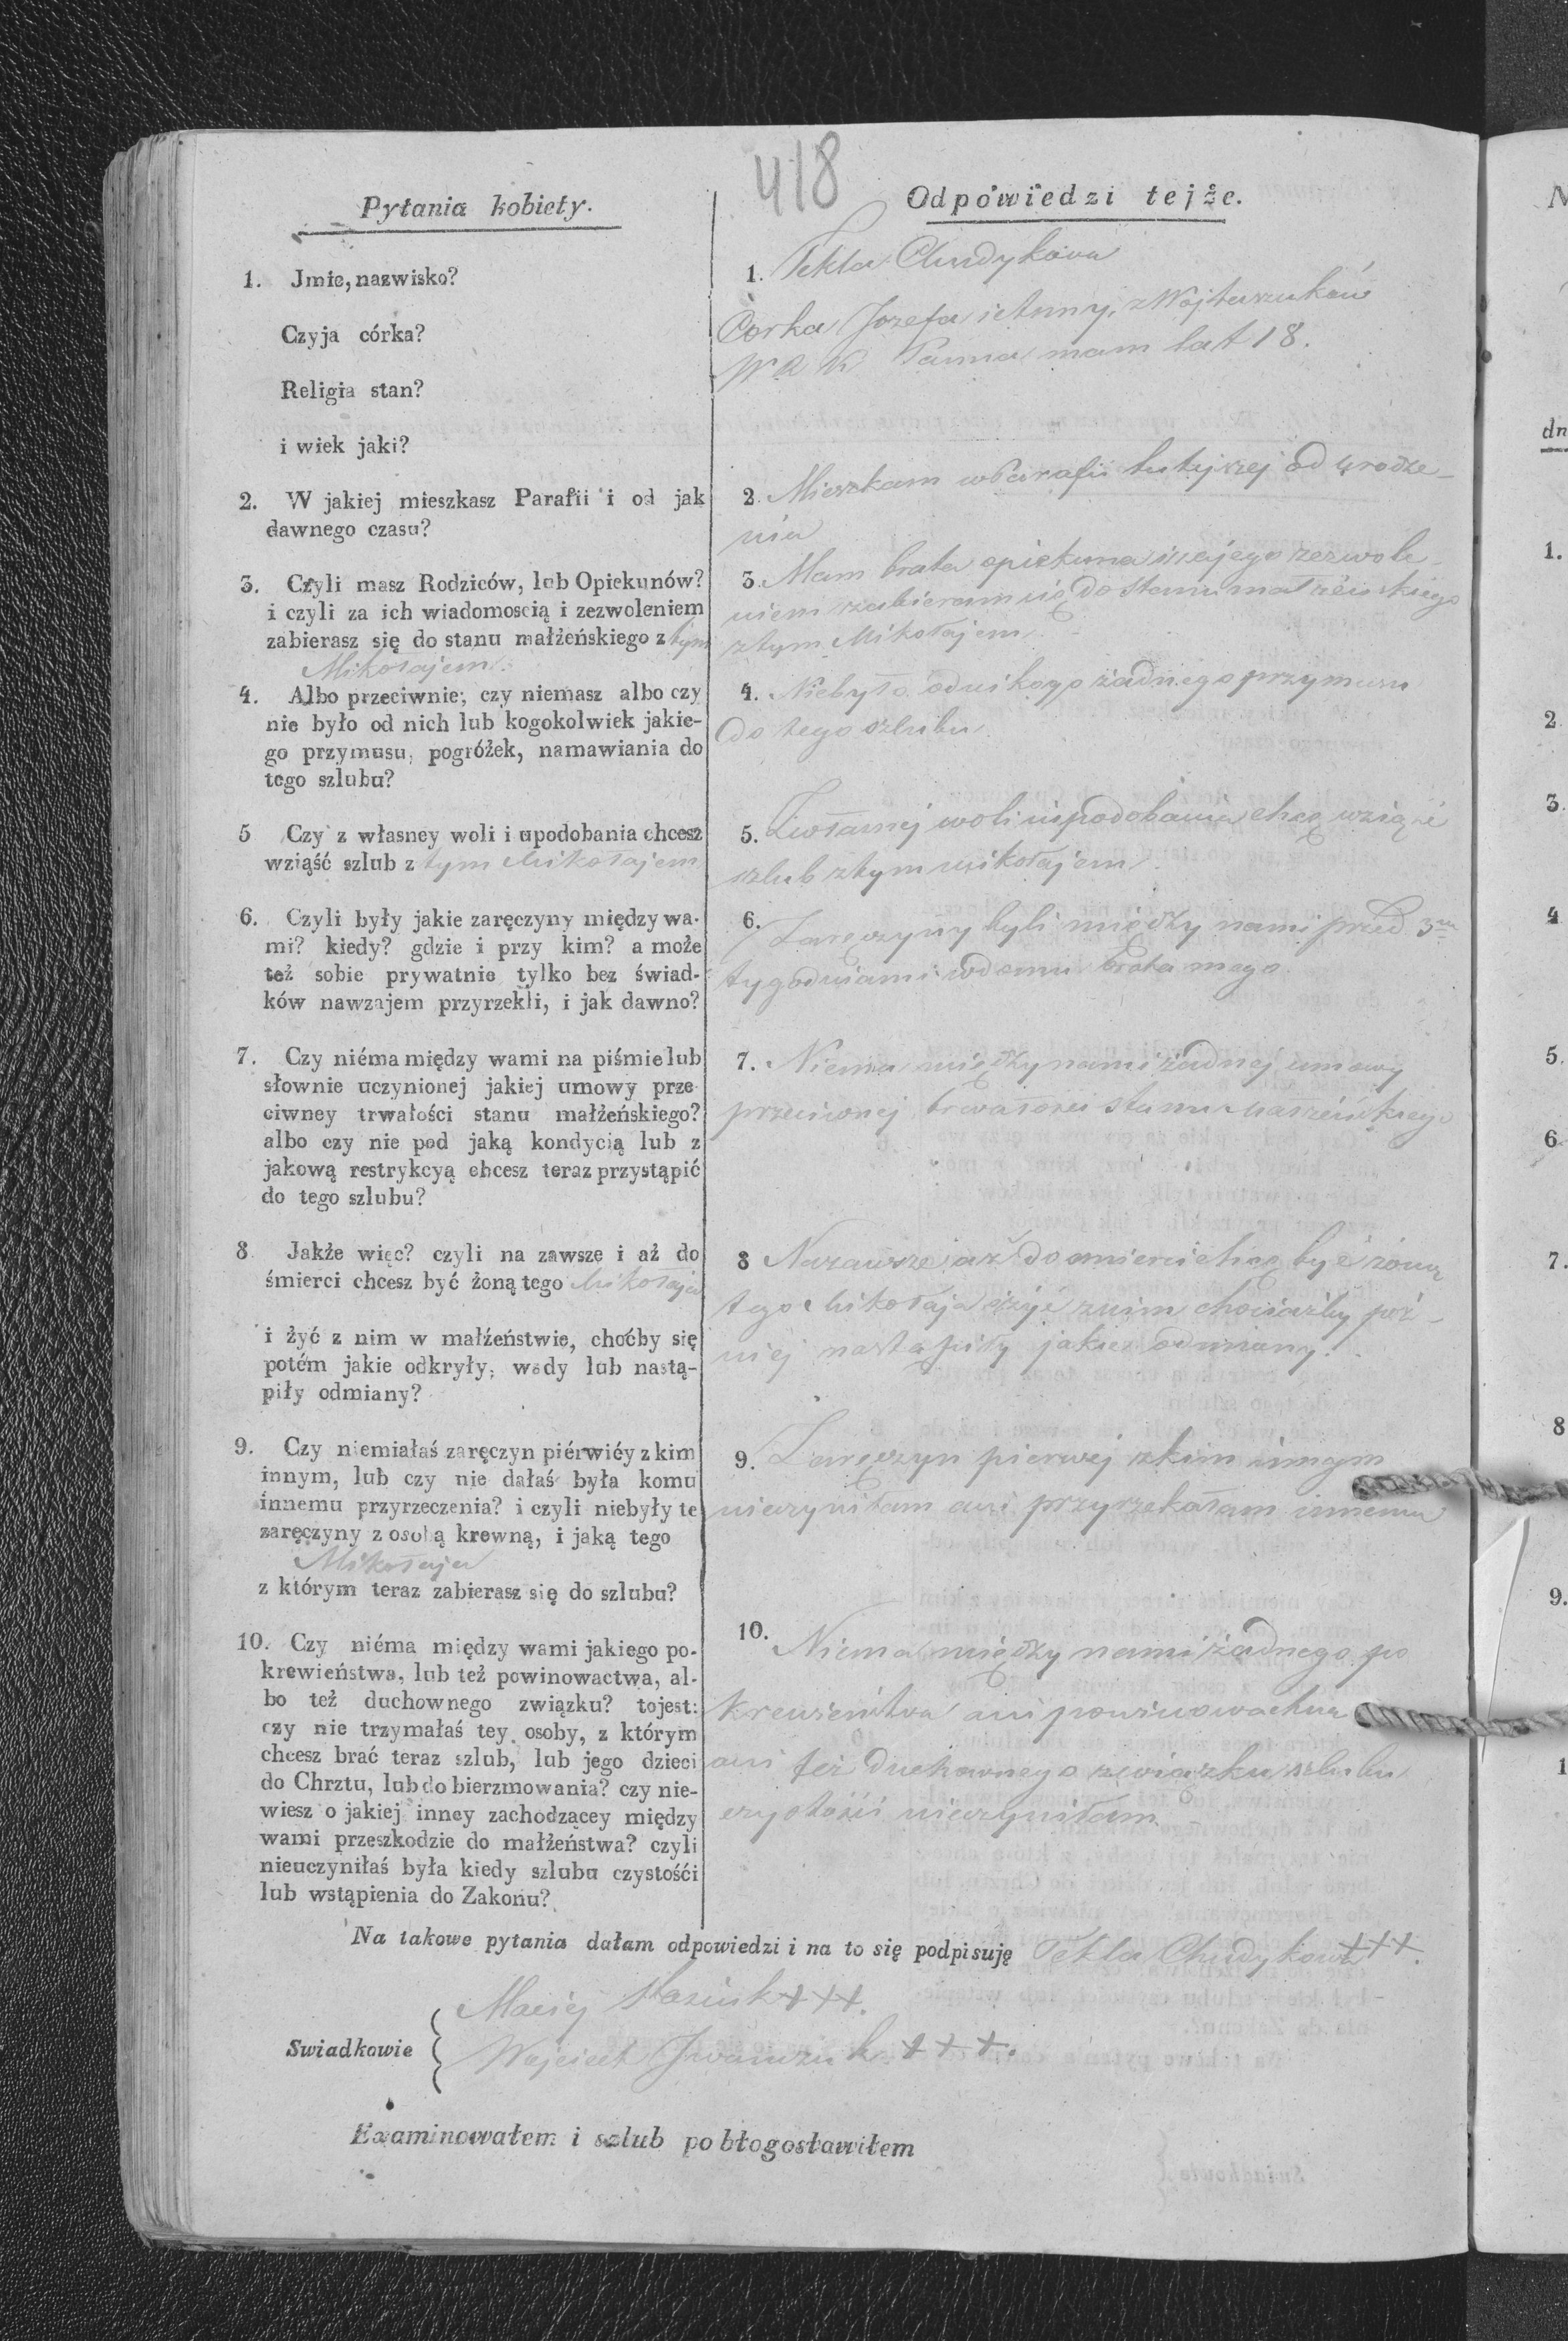 418
Pytania kobiety.
1. Jmie, nazwisko?
Czyja córka?
Religia stan?
i wiek jaki?
2. W jakiej mieszkasz Parafii i od jak
dawnego czasu?
3. Czyli masz Rodziców, lub Opiekunów?
i czyli za ich wiadomoscią i zezwoleniem
zabierasz się do stanu małżeńskiego z tym
Mikołajem
4. Albo przeciwnie; czy niemasz albo czy
nie było od nich lub kogokolwiek jakie-
go przymusu, pogróżek, namawiania do
tego szlubu?
5 Czy z własney woli i upodobania chcesz
wziąść szlub z tym Mikołajem
6. Czyli były jakie zaręczyny między wa-
mi? kiedy? gdzie i przy kim? a może
też sobie prywatnie tylko bez świad-
ków nawzajem przyrzekli, i jak dawno?
7. Czy niéma między wami na piśmie lub
słownie uczynionej jakiej umowy prze
ciwney trwałości stanu małżeńskiego?
albo czy nie pod jaką kondycią lub z
jakową restrykcyą chcesz teraz przystąpić
do tego szlubu?
8 Jakże więc? czyli na zawsze i aż do
śmierci chcesz być żoną tego Mikołaja
i żyć z nim w małżeństwie, choćby się
potém jakie odkryły, wady lub nastą-
piły odmiany?
9. Czy niemiałaś zaręczyn piérwiéy z kim
innym, lub czy nie dałaś była komu
innemu przyrzeczenia? i czyli niebyły te
zaręczyny z osobą krewną, i jaką tego
Mikołaja
z którym teraz zabierasz się do szlubu?
10. Czy niéma między wami jakiego po-
krewieństwa, lub też powinowactwa, al-
bo też duchownego związku? tojest:
czy nie trzymałaś tey osoby, z którym
chcesz brać teraz szlub, lub jego dzieci
do Chrztu, lub do bierzmowania? czy nie-
wiesz o jakiej inney zachodzącey między
wami przeszkodzie do małżeństwa? czyli
nieuczyniłaś była kiedy szlubu czystośći
lub wstąpienia do Zakonu?
Odpowiedzi tejże.
1. Tekla Chudykowa
Corka Jozefa i Anny, z Wojtaszuków
W R K Panna mam lat 18.
2. Mieszkam w Parafii tutejszej od urodze-
nia
3. Mam brata opiekuna i za jego zezwole-
niem zabieram się do stanu małżeńskiego
z tym Mikołajem
4. Niebyło od nikogo żadnego przymusu
do tego szlubu
5. Z własnej woli i upodobania chcę wziąść
szlub z tym mikołajem
6. Zaręczyny byli między nami przed 3ma
tygodniami w domu brata mego
7. Niema między nami żadnej umowy
przeciwnej trwałosci stanu Małżeńskiego
8 Nazawsze, aż do smierci chcę być żoną
tego Mikołaja i żyć z nim chociażby póź-
niej nastąpiły jakiez odmiany.
9. Zaręczyn pierwej z kim innym
nieczyniłam ani przyrzekałam innemu
10. Niema między nami żadnego po
krewieństwa ani powinowactwa
ani też duchownego związku szlubu
czystości nieczyniłam.
Na takowe pytania dałam odpowiedzi i na to się podpisuję Tekla Chudykowa +++.
Maciej +++.
Swiadkowie Wojciech Jwaniuk +++.
Examinowałem i szlub pobłogosławiłem
N
dn
1.
2
3.
4
5.
6
7.
8
9.
1